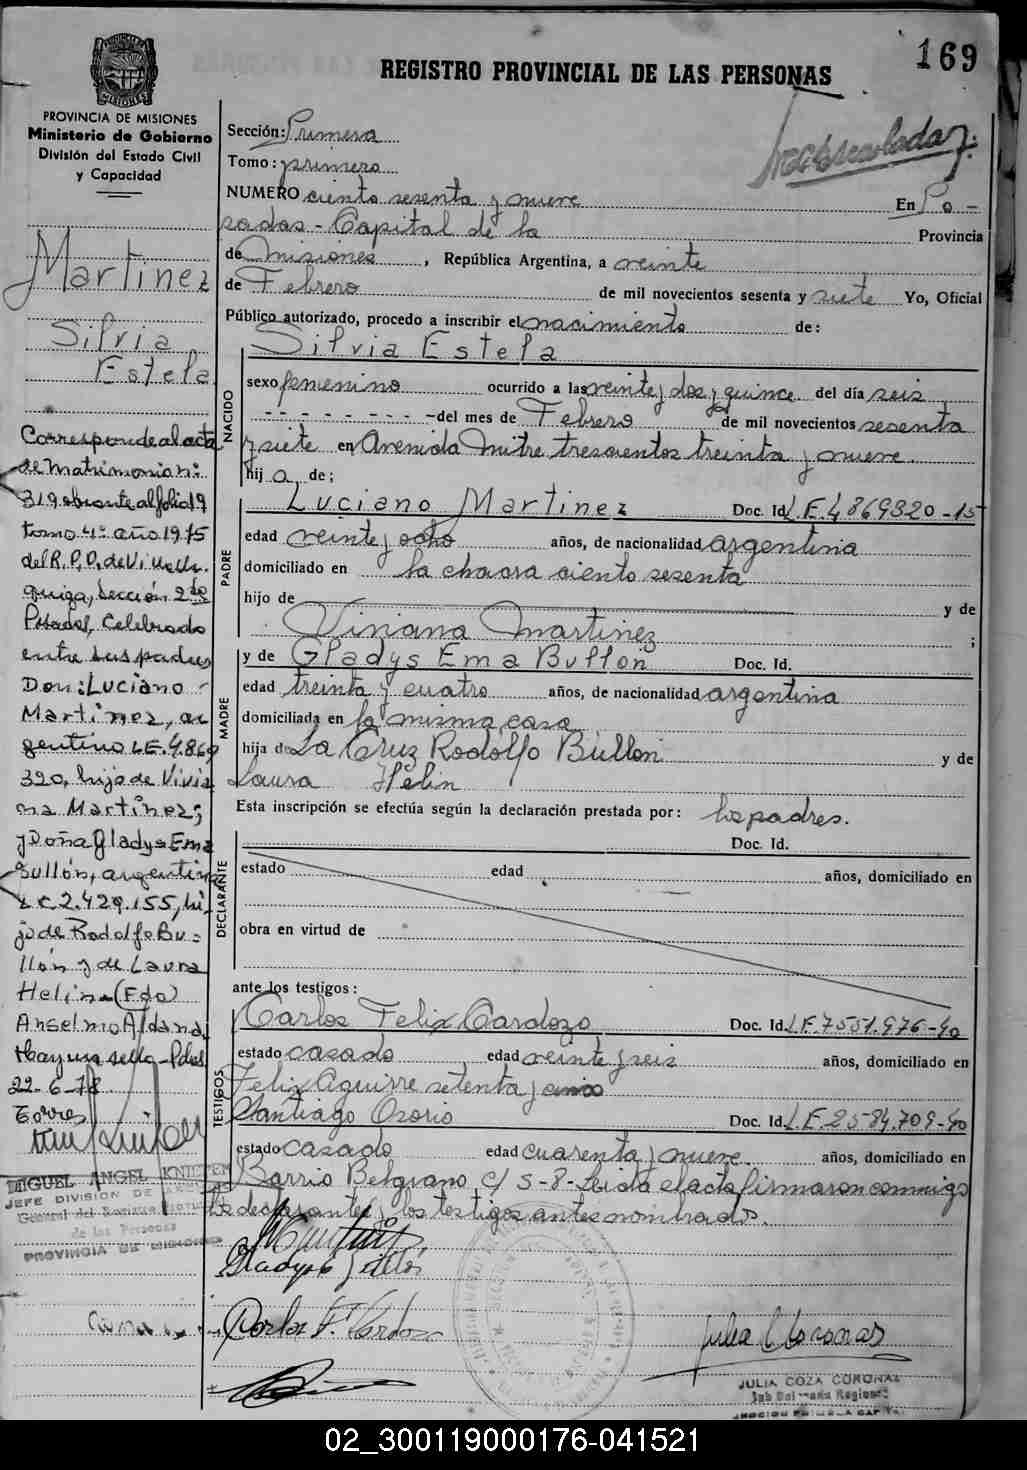 169
REGISTRO PROVINCIAL DE LAS PERSONAS
PROVINCIA DE MISIONES
Ministerio de Gobierno
División del Estado Civil
y Capacidad
Martinez
Silvia
Estela
Corresponde al acta
de matrimonio nº:
319 obrante al folio 19
tomo 4º año 1975
del R.P.P. de Villa
Sección 2da
Posadas, Celebrado
entre sus padres
Don: Luciano
Martinez, ar
gentino L.E. 4.869
320, hijo de Vivia
na Martinez;
y Doña Gladys Ema
Bullón, argentina
L C 2.429.155, hi
ja de Rodolfo Bu-
llón y de Laura
Helin (Fdo)
Anselmo Aldana
Hay un sello - Pdas
22-6-78
Torres
MIGUEL ANGEL
JEFE DIVISION DE
General del Registro
de las Personas
PROVINCIA DE MISIONES
Sección: Primera
Tomo: primero
NUMERO ciento sesenta y nueve En Po-
sadas - Capital de la Provincia
de Misiones, República Argentina, a veinte
de Febrero de mil novecientos sesenta y siete Yo, Oficial
Público autorizado, procedo a inscribir el nacimiento de:
NACIDO
Silvia Estela
sexo femenino ocurrido a las veinte y dos y quince del día seis
del mes de Febrero de mil novecientos sesenta
y siete en Avenida Mitre trescientos treinta y nueve
hija de:
PADRE
Luciano Martinez Doc. Id. L.E. 4869320-15
edad veinte y ocho años, de nacionalidad argentina
domiciliado en la chacra ciento sesenta
hijo de y de
Viviana Martinez ;
MADRE
y de Gladys Ema Bullon Doc. Id.
edad treinta y cuatro años, de nacionalidad argentina
domiciliada en la misma casa
hija de La Cruz Rodolfo Bullon y de
Laura Helin
Esta inscripción se efectúa según la declaración prestada por: los padres.
DECLARANTE
Doc. Id.
estado edad años, domiciliado en
obra en virtud de
ante los testigos:
TESTIGOS
Carlos Felix Cardozo Doc. Id. L.E. 7551.976-40
estado casado edad veinte y seis años, domiciliado en
Felix Aguirre setenta y cinco
Santiago Osorio Doc. Id. L.E. 2584.709-40
estado casado edad cuarenta y nueve años, domiciliado en
Barrio Belgrano c/ 5-8- Leida el acta firmaron conmigo
los declarantes y los testigos antes nombrados.
JULIA COZA CORONAS
02_300119000176-041521